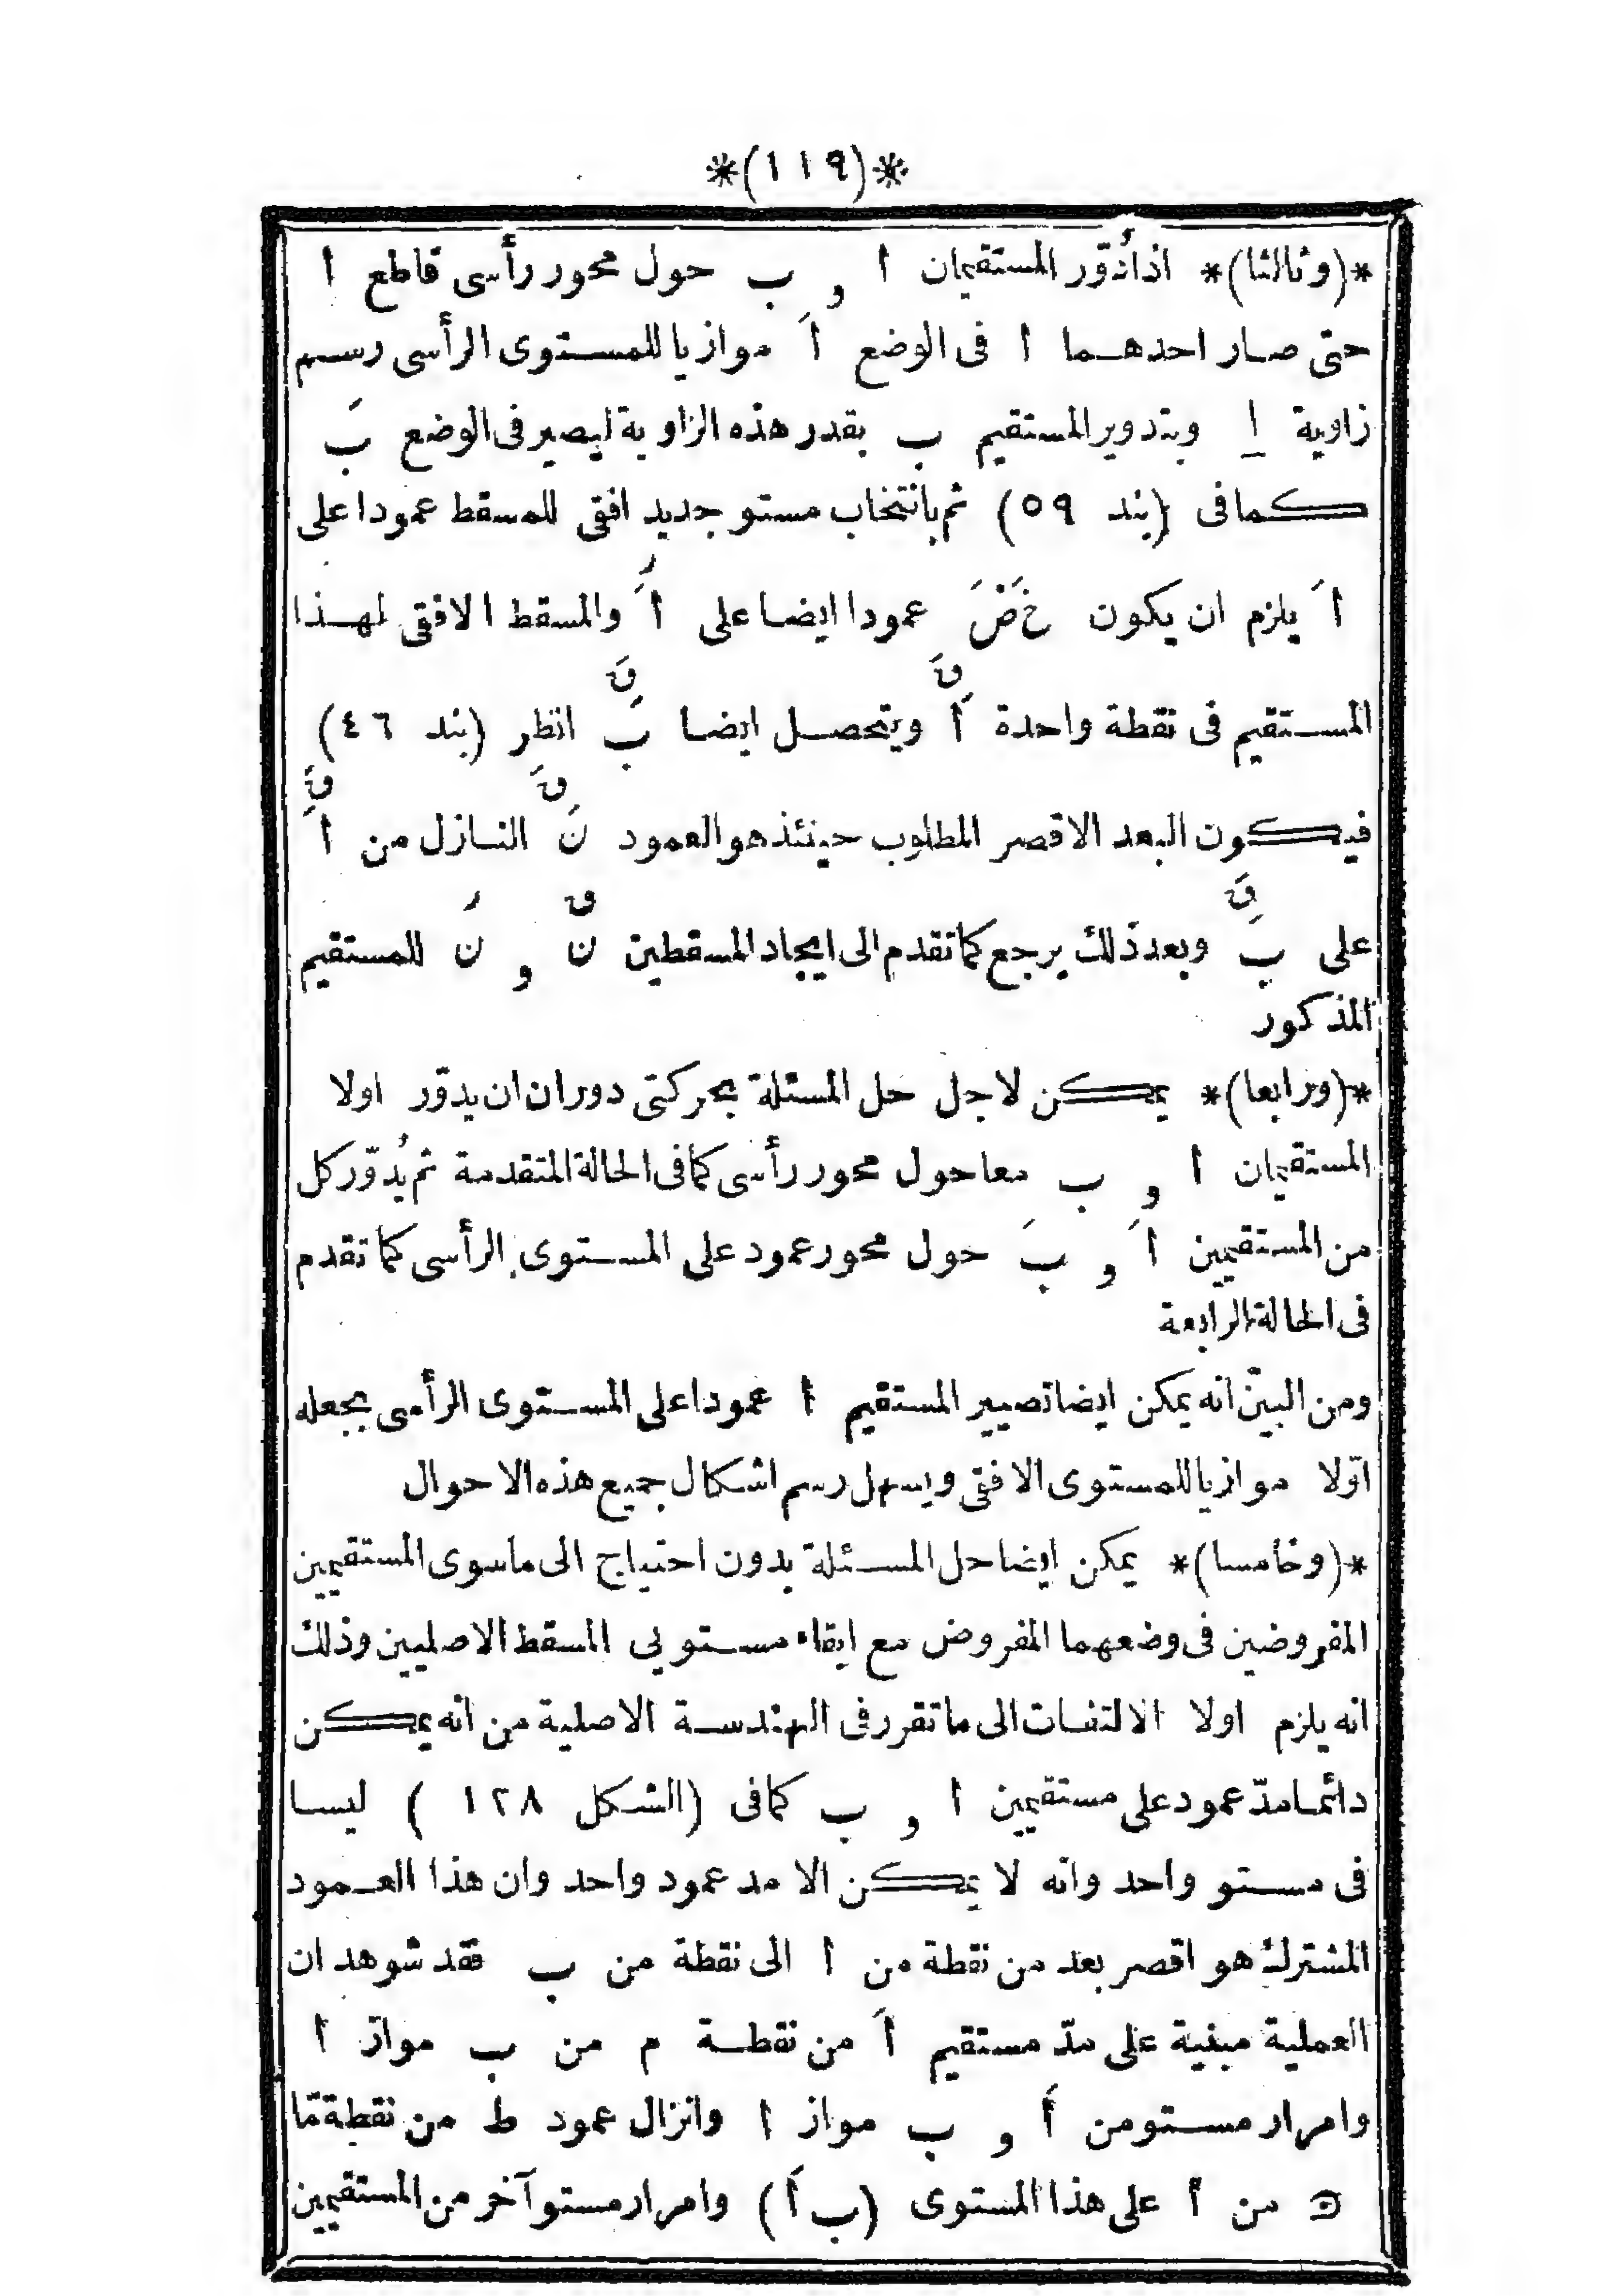 *(١١٩)*
*(وثالثا)* اذا دُوّر المستقيمان ا و ب حول محور رأسى قاطع ا
حتى صار احدهما ا فى الوضع اَ موازيا للمستوى الرأسى رسم
زاوية ا وبتدوير المستقيم ب بقدر هذه الزاوية ليصير فى الوضع بَ
كما فى (بند ٥٩) ثم بانتخاب مستو جديد افقى للمسقط عمودا على
اَ يلزم ان يكون خَضَ عمودا ايضا على اَر والمسقط الافقى لهذا
المستقيم فى نقطة واحدة اَق ويتحصل ايضا بَق انظر (بند ٤٦)
فيكون البعد الاقصر المطلوب حينئذ هو العمود نَق النازل من اَق
على بَق وبعد ذلك يرجع كما تقدم الى ايجاد المسقطين نق و نَر للمستقيم
المذكور
*(ورابعا)* يمكن لاجل حل المسئلة بحركتى دوران ان يدوّر اولا
المستقيمان ا و ب معا حول محور رأسى كما فى الحالة المتقدمة ثم يُدوّر كل
من المستقيمين اَ و بَ حول محور عمود على المستوى الرأسى كما تقدم
فى الحالة الرابعة
ومن البيّن انه يمكن ايضا تصيير المستقيم ا عمودا على المستوى الرأسى بجعله
اوّلا موازيا للمستوى الافقى ويسهل رسم اشكال جميع هذه الاحوال
*(وخامسا)* يمكن ايضا حل المسئلة بدون احتياج الى ماسوى المستقيمين
المفروضين فى وضعهما المفروض مع ابقاء مستويى المسقط الاصليين وذلك
انه يلزم اولا الالتفات الى ما تقرر فى الهندسة الاصلية من انه يمكن
دائما مدّ عمود على مستقيمين ا و ب كما فى (الشكل ١٢٨) ليسا
فى مستو واحد وانه لا يمكن الا مد عمود واحد وان هذا العمود
المشترك هو اقصر بعد من نقطة من ا الى نقطة من ب فقد شوهد ان
العملية مبنية على مدّ مستقيم اَ من نقطة م من ب مواز ا
وامرار مستو من اَ و ب مواز ا وانزال عمود ط من نقطة مّا
من ا على هذا المستوى (ب اَ) وامرار مستو آخر من المستقيمين